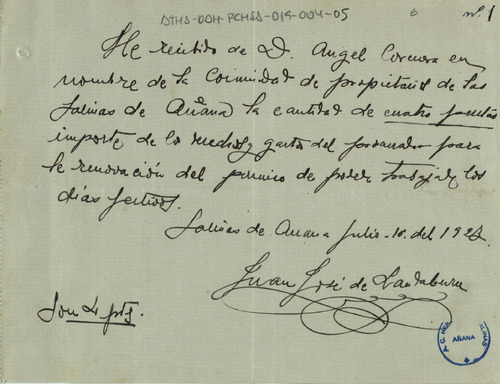 ATHA-DDH-PCHSA-019-004-05
nº 1
He recibido de D. Angel Corcuera en
nombre de la Comunidad de propietarios de las
Salinas de Añana la cantidad de cuatro pesetas
importe de los y gastos del procurador para
la renovación del permiso de poder trabajar los
días festivos.
Salinas de Añana Julio 10 del 192
Juan José de Landaburu
Son 4 pts
AÑANA